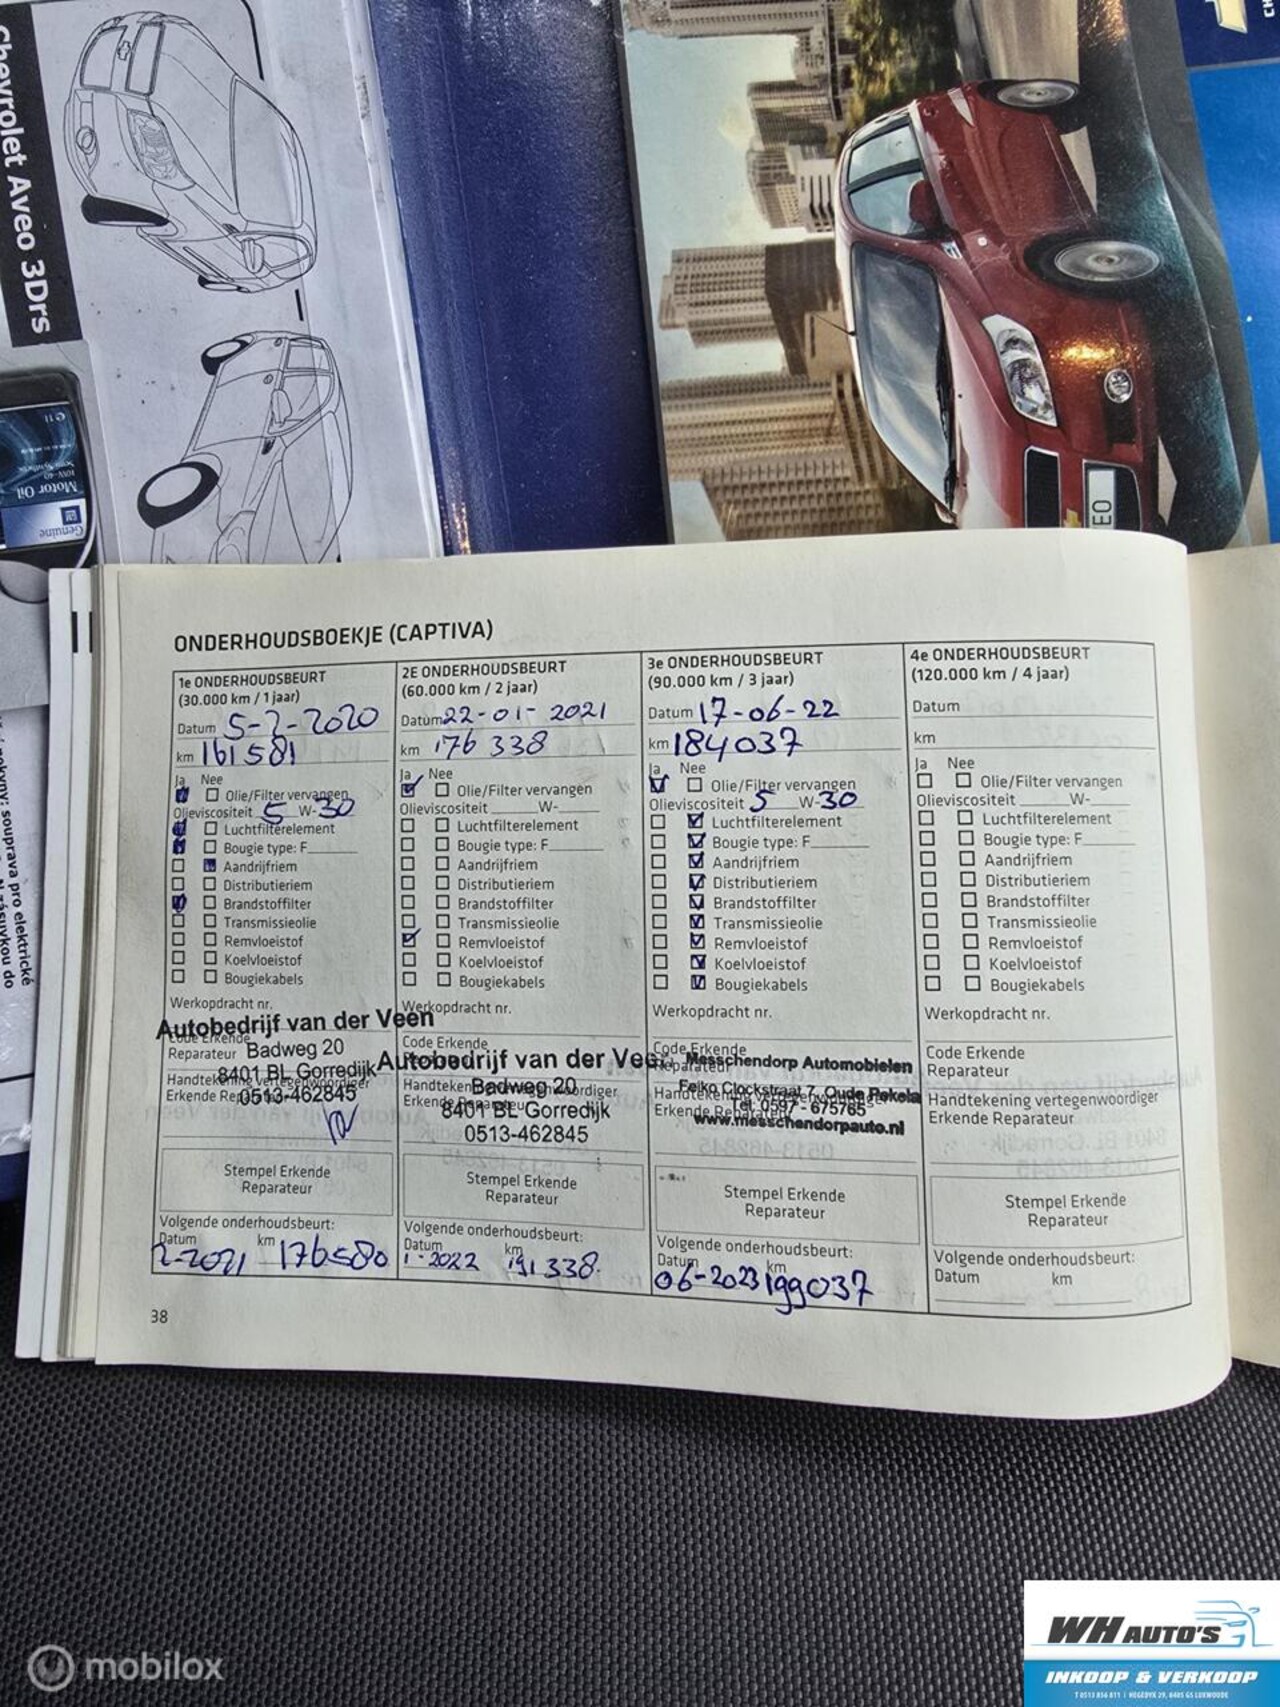 Chevrolet Aveo 3Drs
Motor Oil
Genuine
GM
EO
CH
souprava pro elektrické
ONDERHOUDSBOEKJE (CAPTIVA)
1e ONDERHOUDSBEURT
(30.000 km / 1 jaar)
Datum 5-2-2020
km 161581
Ja Nee
Olie/Filter vervangen
Olieviscositeit 5 W-30
Luchtfilterelement
Bougie type: F
Aandrijfriem
Distributieriem
Brandstoffilter
Transmissieolie
Remvloeistof
Koelvloeistof
Bougiekabels
Werkopdracht nr.
Autobedrijf van der Veen
Code Erkende
Reparateur Badweg 20
8401 BL Gorredijk
Handtekening vertegenwoordiger
Erkende Reparateur
0513-462845
Stempel Erkende
Reparateur
Volgende onderhoudsbeurt:
Datum km
2-2021 176580
2E ONDERHOUDSBEURT
(60.000 km / 2 jaar)
Datum 22-01-2021
km 176 338
Ja Nee
Olie/Filter vervangen
Olieviscositeit W-
Luchtfilterelement
Bougie type: F
Aandrijfriem
Distributieriem
Brandstoffilter
Transmissieolie
Remvloeistof
Koelvloeistof
Bougiekabels
Werkopdracht nr.
Code Erkende
Autobedrijf van der Veen
Handtekening vertegenwoordiger
Badweg 20
Erkende Reparateur
8401 BL Gorredijk
0513-462845
Stempel Erkende
Reparateur
Volgende onderhoudsbeurt:
Datum km
1-2022 191338.
3e ONDERHOUDSBEURT
(90.000 km / 3 jaar)
Datum 17-06-22
km 184037
Ja Nee
Olie/Filter vervangen
Olieviscositeit 5 W-30
Luchtfilterelement
Bougie type: F
Aandrijfriem
Distributieriem
Brandstoffilter
Transmissieolie
Remvloeistof
Koelvloeistof
Bougiekabels
Werkopdracht nr.
Code Erkende
Reparateur
Messchendorp Automobielen
Feiko Clockstraat 7, Oude Pekela
Handtekening vertegenwoordiger
Tel. 0597 - 675765
Erkende Reparateur
www.messchendorpauto.nl
Stempel Erkende
Reparateur
Volgende onderhoudsbeurt:
Datum km
06-2023 199037
4e ONDERHOUDSBEURT
(120.000 km / 4 jaar)
Datum
km
Ja Nee
Olie/Filter vervangen
Olieviscositeit W-
Luchtfilterelement
Bougie type: F
Aandrijfriem
Distributieriem
Brandstoffilter
Transmissieolie
Remvloeistof
Koelvloeistof
Bougiekabels
Werkopdracht nr.
Code Erkende
Reparateur
Handtekening vertegenwoordiger
Erkende Reparateur
Stempel Erkende
Reparateur
Volgende onderhoudsbeurt:
Datum km
38
mobilox
WH AUTO'S
INKOOP & VERKOOP
T 0513 856 811 | HEGEDYK 29, 8405 GS LUXWOUDE